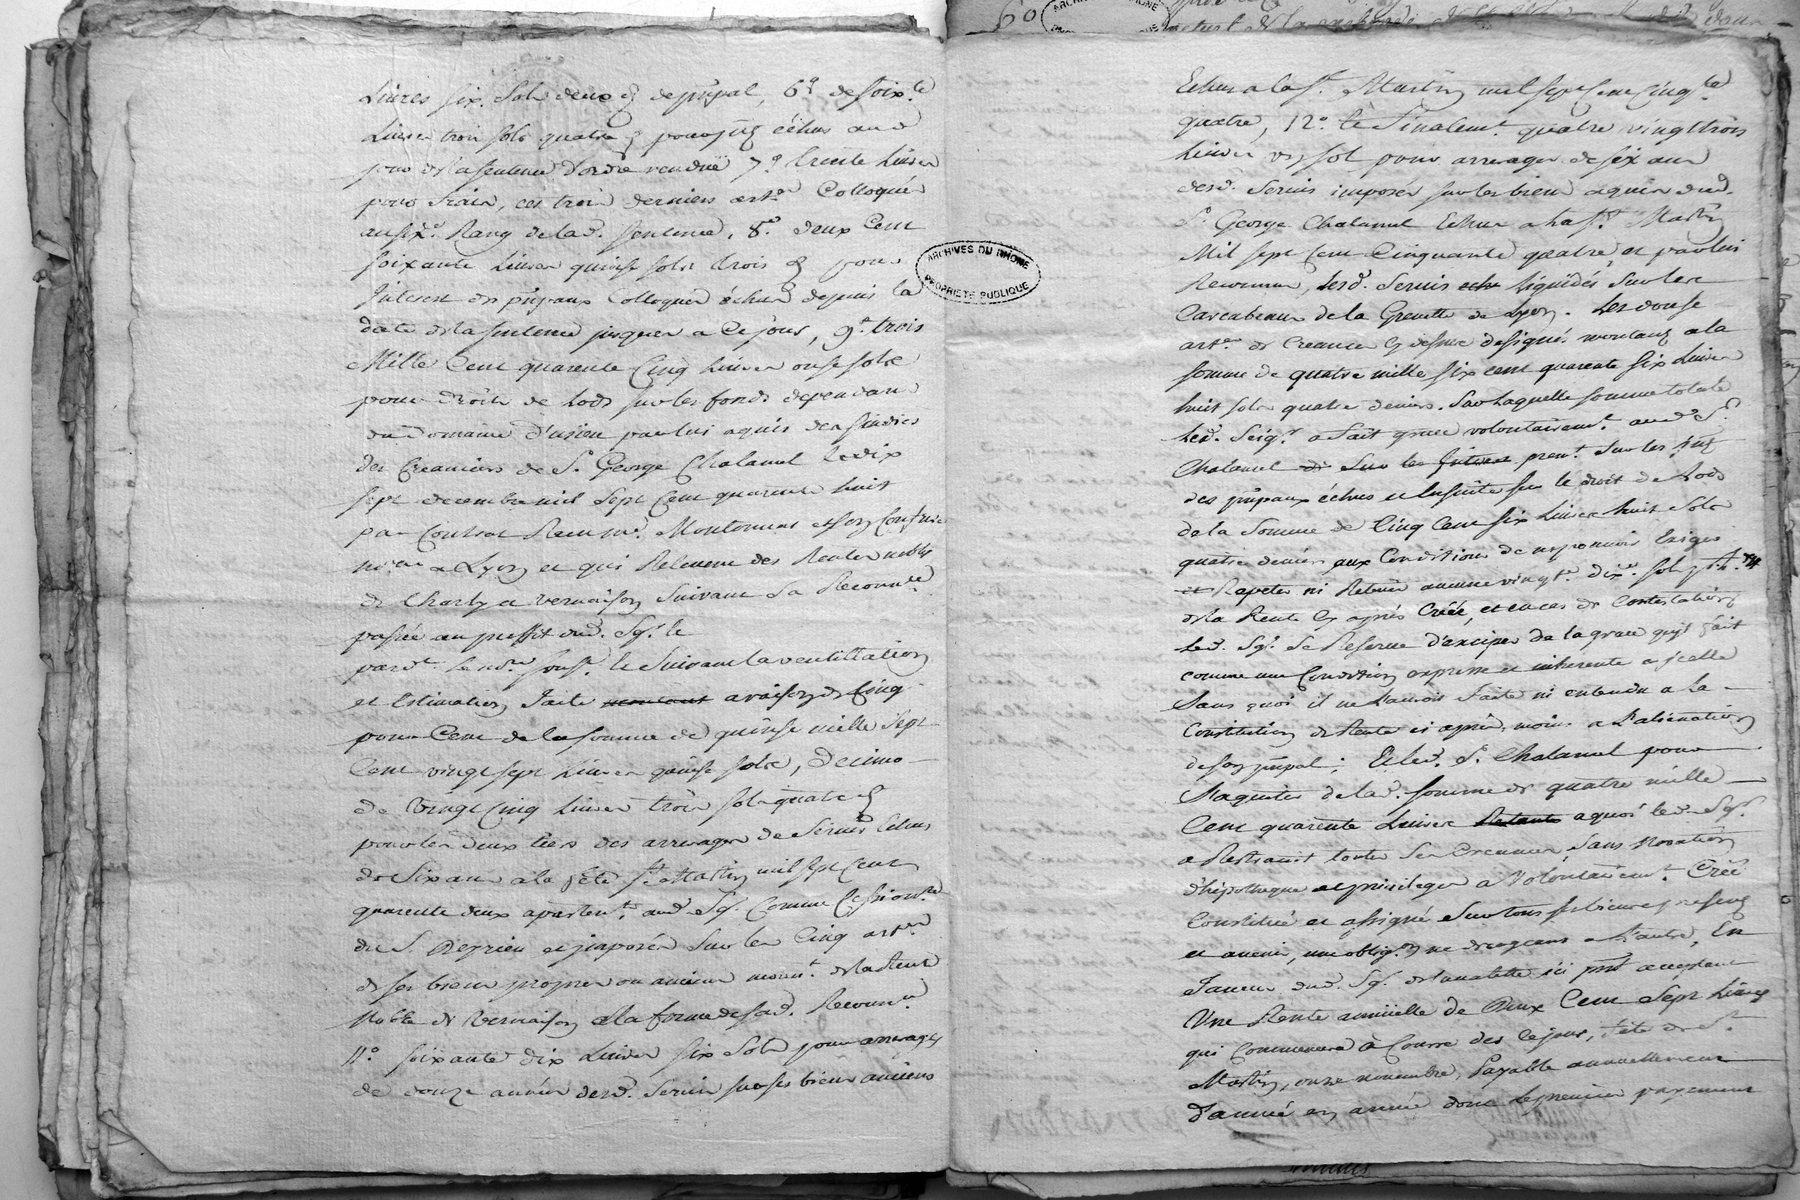 Livres six sols deux d. de prīpal, 6° de soix.te
Livres trois sols quatre d. pour jtz échus au d.
jour de la sentence d'ordre renduë 7° trente Livres
pour frais, ces trois derniers art.es Colloqués
au six.e Rang de lad. sentence, 8.° deux Cent
soixante Livres quinse sols trois d. pour
Jnterest des prīpaux Colloqués échus depuis la
date de la sentence jusques a ce jour, 9.° trois
Mille Cent quarente Cinq Livres onse sols
pour droits de Lods sur les fonds dependans
du Domaine d'usieu par lui aquis des sindics
des Creanciers de S.r George Chalamel le dix
sept decembre mil sept Cent quarente huit
par Contrat Recu m.e et son Confrere
no.res a Lyon et qui Relevent des Rentes nobles
de Charly et vernaison suivant sa Reconn.ce
passée au proffit dud. Sg.r le
pard.t le no.re souss.é le suivant la ventillation
et Estimation faite a raison de Cinq
pour Cent de la somme de quinse mille sept
Cent vingt sept Livres quinse sols, Decimo
de vingt Cinq Livres trois sols quatre d.
pour les deux tiers des arrerages de servis échus
de six ans a la fête S.t Martin mil sept Cent
quarente deux aparten.t aud. Sg.r Comme Cession.re
du S.r et jmposés sur les Cinq art.es
de ses biens propres ou anciens mouv.t de la Rente
Noble de Vernaison a la forme de sad. Reconn.ce
11.° soixante dix Livres six Sols pour arrerages
de douze années desd. servis sur ses biens anciens
Echus a la S.t Martin mil sept Cent Cinq.te
quatre, 12.° Et Finalem.t quatre vingt trois
Livres un sol pour arrerages de six ans
desd. Servis imposés sur les biens aquis dud.
S.r George Chalamel Echus a la S.t Martin
Mil sept Cent Cinquante quatre, et par lui
Reconnus, Lesd. Servis liquidés sur les
Carcabeaux de la Grenette de Lyon. Les douse
art.es de Creance cy dessus designés montans a la
somme de quatre mille six cent quarente six Livres
huit sols quatre deniers. Sur Laquelle somme totale
Led. Seig.r a fait grace volontairem.t aud. S.r
Chalamel sur les Jnterest prem.t sur les jntz
des prīpaux échus et Ensuite sur le droit de Lods
de la Somme de Cinq Cent six Livres huit Sols
quatre deniers aux Conditions de ne pouvoir Exiger
et Rapeter ni Retenir aucune vingt.e dix.e sols p.r L.
de la Rente cy après Créée, et en cas de Contestation
Led. Sg.r Se Reserve d'exciper de la grace qu'il fait
comme une Condition expresse et inherente a jcelle
Sans quoi il ne l'auroit faite ni entendu a la
Constitution de Rente ci après, moins a l'alienation
de son prīpal; Et led. S.r Chalamel pour
S'aquiter de lad. somme de quatre mille
Cent quarente Livres Restante a quoi led. Sg.r
a Restraint toutes ses Creances sans Novation
d'hipotheque et privileges a Volontairem.t Créé
Constitué et assigné sur tous ses biens presens
et avenir, une oblig.on ne derogeant a l'autre, En
Faveur dud. Sg.r ici prnt acceptant
Une Rente annuelle de Deux Cent Sept Livres
qui Commencera a Courre dès Ce jour, fête de S.t
Martin, onze novembre, Payable annuellement
d'année en année dont le premier payement
ARCHIVES DU RHÔNE
PROPRIÉTÉ PUBLIQUE